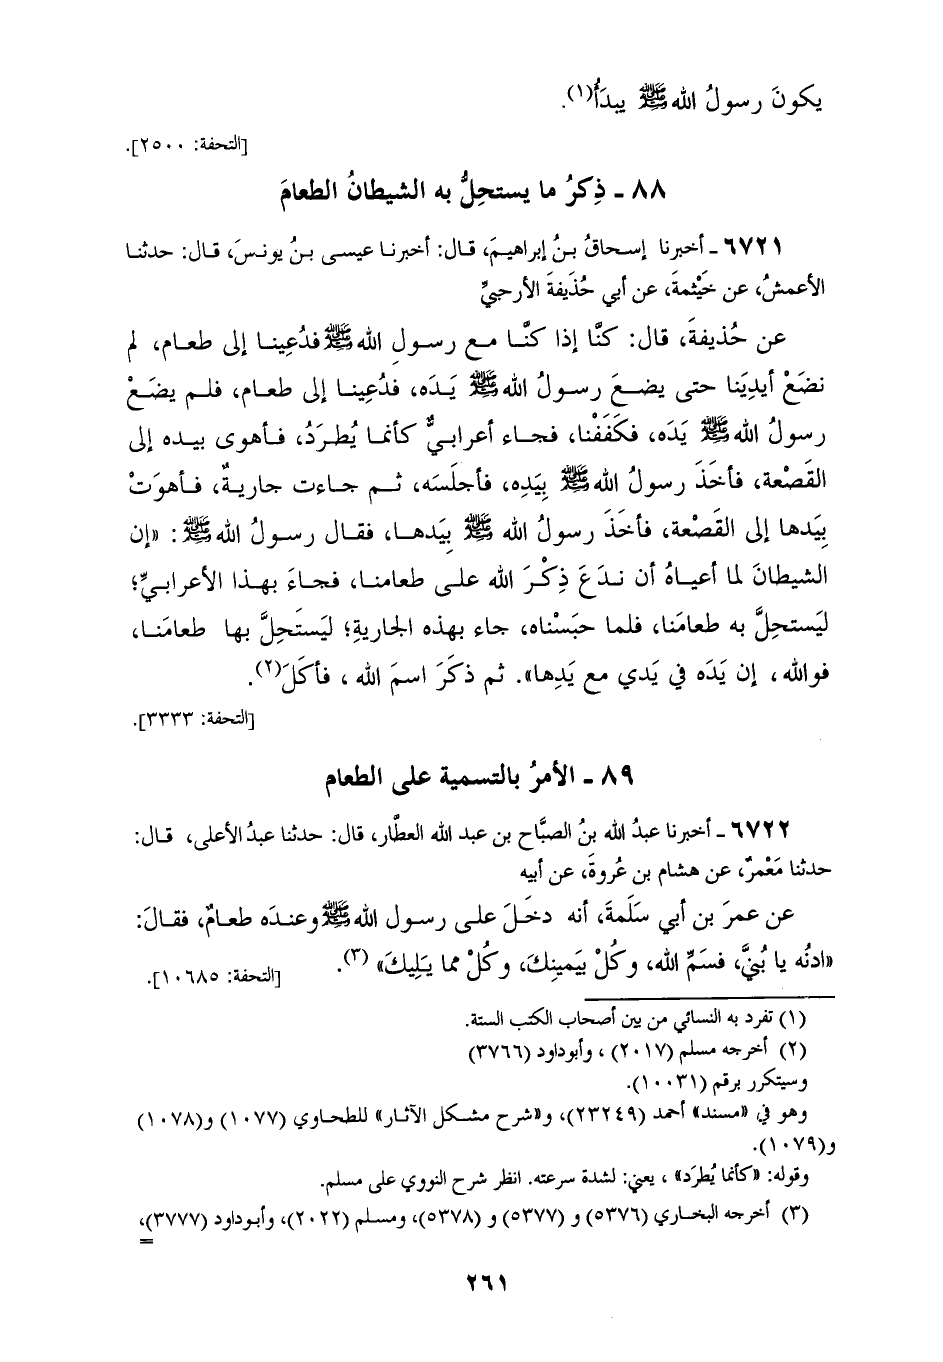 يكونَ رسولُ الله ﷺ يبدَأُ(١).
[التحفة: ٢٥٠٠].
٨٨ - ذِكرُ ما يستحِلُّ به الشيطانُ الطعامَ
٦٧٢١ - أخبرنا إسحاقُ بنُ إبراهيمَ، قال: أخبرنا عيسى بنُ يونسَ، قال: حدثنا
الأعمشُ، عن خَيْثمةَ، عن أبي حُذَيفةَ الأرحبيِّ
عن حُذيفةَ، قال: كنَّا إذا كنَّا مع رسولِ الله ﷺ فدُعِينا إلى طعام، لم
نضَعْ أيدِيَنا حتى يضعَ رسولُ الله ﷺ يَدَه، فدُعِينا إلى طعام، فلم يضَعْ
رسولُ الله ﷺ يَدَه، فكَفَفْنا، فجاء أعرابيٌّ كأنما يُطرَدُ، فأهوى بيده إلى
القَصْعة، فأخَذَ رسولُ الله ﷺ بيَدِه، فأجلَسَه، ثم جاءت جاريةٌ، فأهوَتْ
بيَدها إلى القَصْعة، فأخَذَ رسولُ الله ﷺ بيَدها، فقال رسولُ الله ﷺ: «إن
الشيطانَ لما أعياهُ أن ندَعَ ذِكْرَ الله على طعامنا، فجاءَ بهذا الأعرابيِّ؛
ليَستحلَّ به طعامَنا، فلما حبَسْناه، جاء بهذه الجاريةِ؛ ليَستَحِلَّ بها طعامَنا،
فوالله، إن يَدَه في يَدي مع يَدِها». ثم ذكَرَ اسمَ الله، فأكَلَ(٢).
[التحفة: ٣٣٣٣].
٨٩ - الأمرُ بالتسمية على الطعام
٦٧٢٢ - أخبرنا عبدُ الله بنُ الصبَّاح بن عبد الله العطَّار، قال: حدثنا عبدُ الأعلى، قال:
حدثنا مَعْمرٌ، عن هشام بن عُروةَ، عن أبيه
عن عمرَ بن أبي سَلَمةَ، أنه دخَلَ على رسول الله ﷺ وعندَه طعامٌ، فقالَ:
«ادنُه يا بُنيَّ، فسَمِّ الله، وكُلْ بيَمينِكَ، وكُلْ مما يَلِيكَ» (٣). [التحفة: ١٠٦٨٥].
(١) تفرد به النسائي من بين أصحاب الكتب الستة.
(٢) أخرجه مسلم (٢٠١٧) ، وأبوداود (٣٧٦٦)
وسيتكرر برقم (١٠٠٣١).
وهو في «مسند» أحمد (٢٣٢٤٩)، و«شرح مشكل الآثار» للطحاوي (١٠٧٧) و(١٠٧٨)
و(١٠٧٩).
وقوله: «كأنما يُطرَد» ، يعني: لشدة سرعته. انظر شرح النووي على مسلم.
(٣) أخرجه البخاري (٥٣٧٦) و (٥٣٧٧) و (٥٣٧٨)، ومسلم (٢٠٢٢)، وأبوداود (٣٧٧٧)،
=
٢٦١